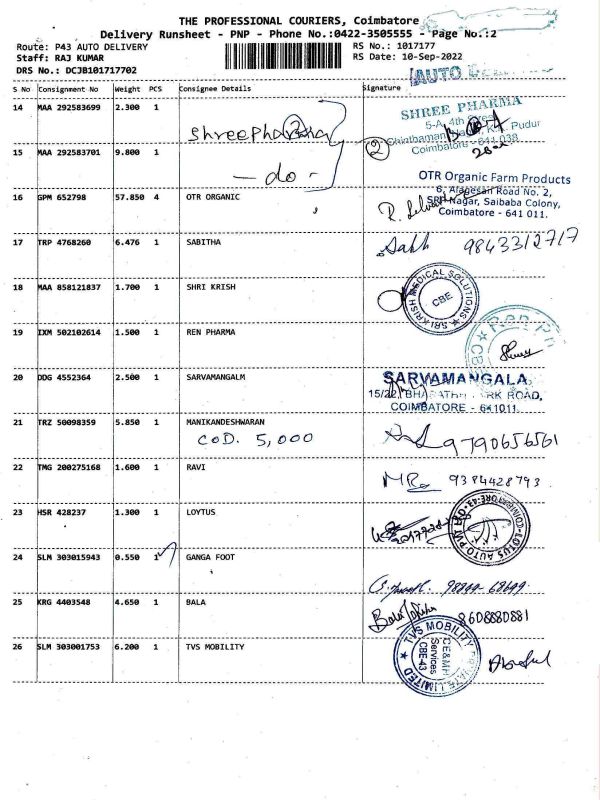 THE PROFESSIONAL COURIERS, Coimbatore
Delivery Runsheet - PNP - Phone No.:0422-3505555 - Page No.:2
Route: P43 AUTO DELIVERY
RS No.: 1017177
Staff: RAJ KUMAR
RS Date: 10-Sep-2022
DRS No.: DCJB101717702
S No Consignment No Weight PCS Consignee Details Signature
14 MAA 292583699 2.300 1
SHREE PHARMA
5-A, 4th
K.K. Pudur
Coimbatore - 641 038
2
15 MAA 292583701 9.800 1
- do -
16 GPM 652798 57.850 4 OTR ORGANIC
OTR Organic Farm Products
6, Alagesan Road No. 2,
SRP Nagar, Saibaba Colony,
Coimbatore - 641 011.
17 TRP 4768260 6.476 1 SABITHA
9843312717
18 MAA 858121837 1.700 1 SHRI KRISH
SRI KRISH MEDICAL SOLUTIONS
CBE
19 IXM 502102614 1.500 1 REN PHARMA
20 DDG 4552364 2.500 1 SARVAMANGALM
SARVAMANGALA
15/22, BHARATHI PARK ROAD,
COIMBATORE - 641011.
21 TRZ 50098359 5.850 1 MANIKANDESHWARAN
COD. 5,000
9790656561
22 TMG 200275168 1.600 1 RAVI
9384428793
23 HSR 428237 1.300 1 LOYTUS
LOTUS AUTO
COIMBATORE-43
24 SLM 303015943 0.550 1 GANGA FOOT
98899-68699
25 KRG 4403548 4.650 1 BALA
8608880881
26 SLM 303001753 6.200 1 TVS MOBILITY
TVS MOBILITY PRIVATE LIMITED
CE&MH
Services
CBE-43